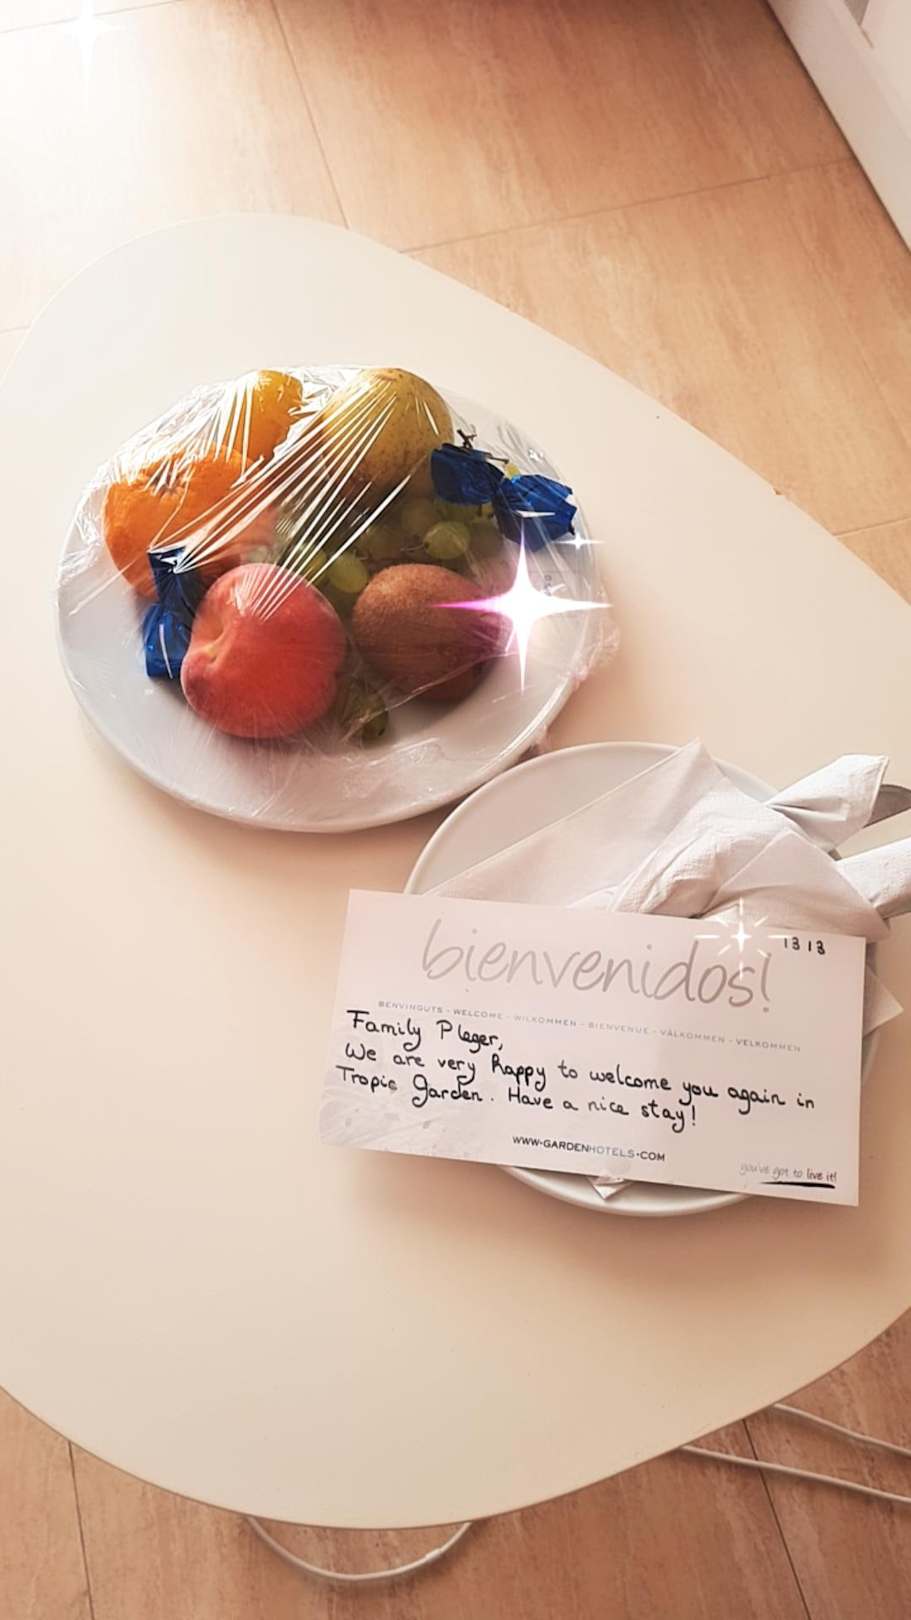 1313
bienvenidos!
BENVINGUTS - WELCOME - WILKOMMEN - BIENVENUE - VÄLKOMMEN - VELKOMMEN
Family Pleger,
We are very happy to welcome you again in
Tropic Garden. Have a nice stay!
WWW·GARDENHOTELS·COM
you've got to live it!